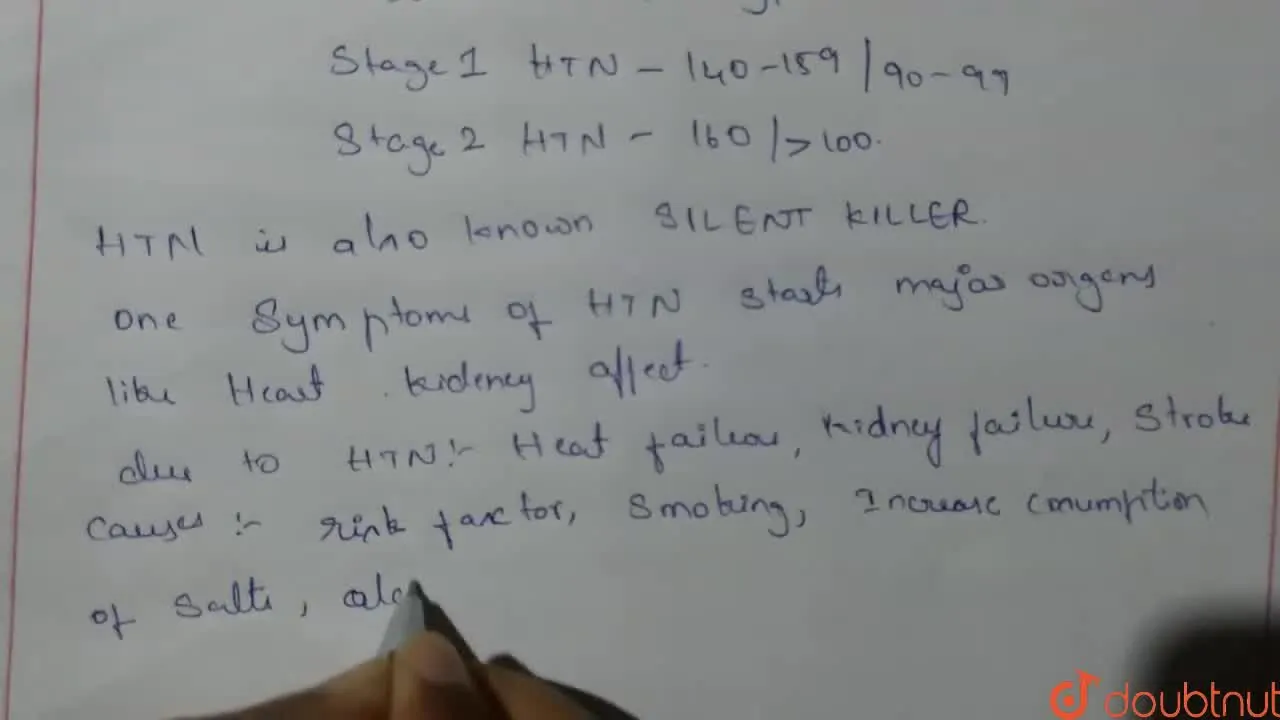 Stage 1 HTN - 140-159 / 90-99
Stage 2 HTN - 160 / >100.
HTN is also known SILENT KILLER.
one Symptoms of HTN starts major organs
like Heart . kideney affect.
due to HTN:- Heat failure, kidney failure, Stroke
Causes :- risk factor, Smoking, Increase consumption
of Salts, alc
doubtnut